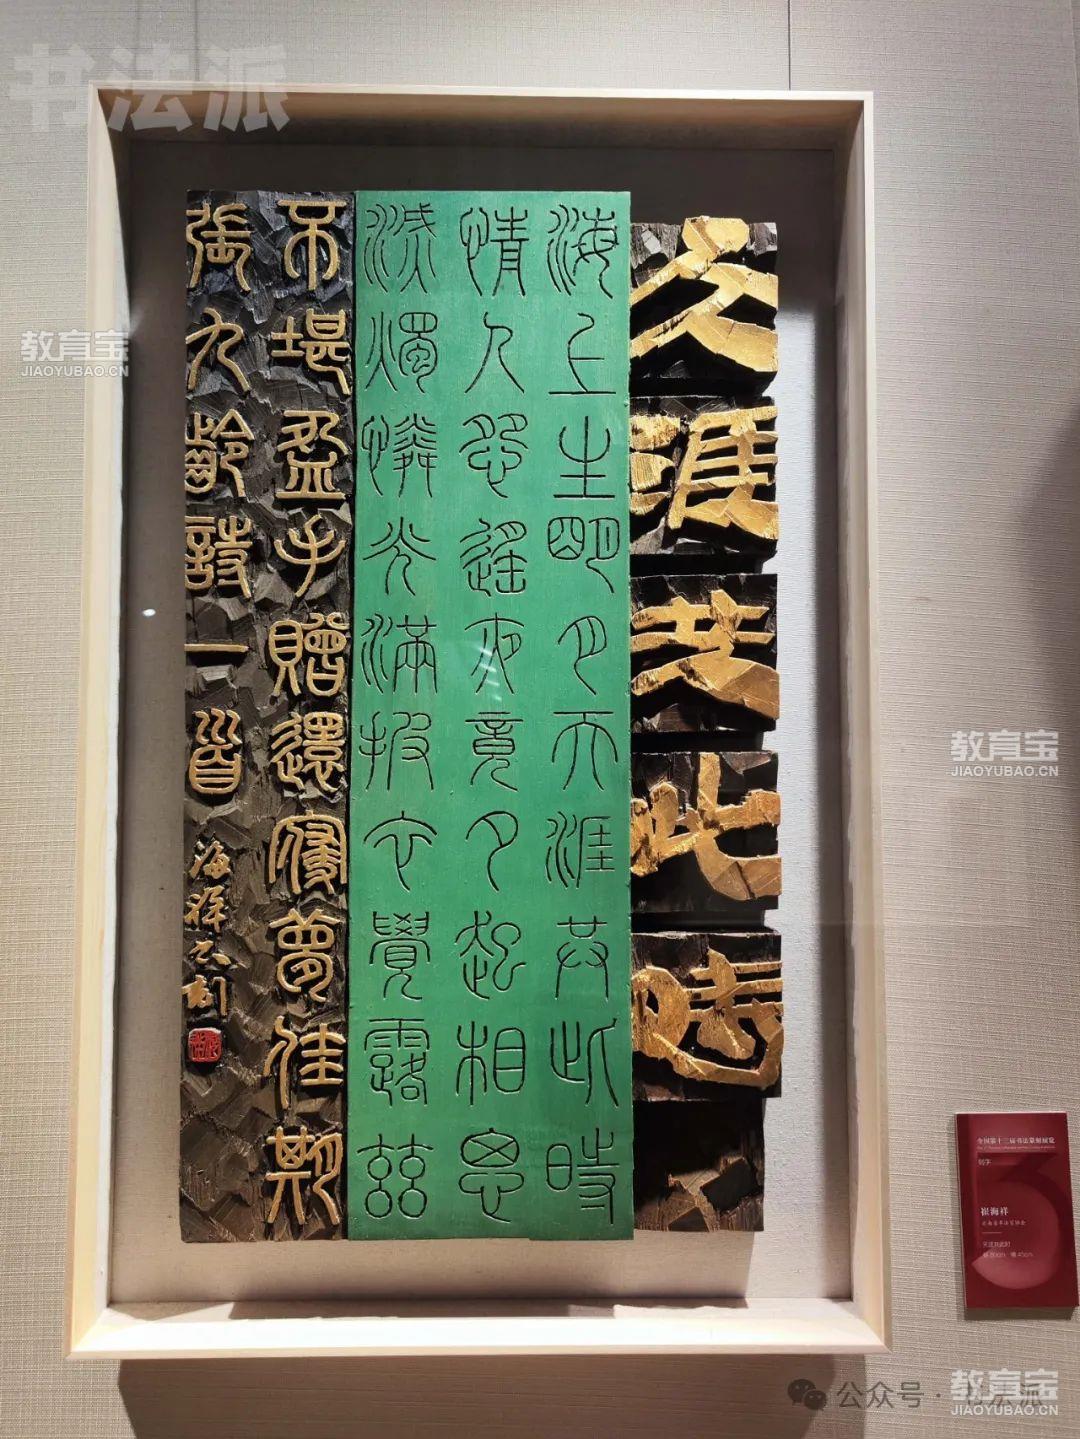 书法派
天涯共此时
海上生明月天涯共此時
情人怨遥夜竟夕起相思
滅燭憐光滿披衣覺露兹
不堪盈手贈還寢夢佳期
張九齡詩一首
海祥又刻
教育宝
JIAOYUBAO.CN
教育宝
JIAOYUBAO.CN
全国第十三届书法篆刻展览
刻字
3
崔海祥
天涯共此时
公众号·书法派
教育宝
JIAOYUBAO.CN